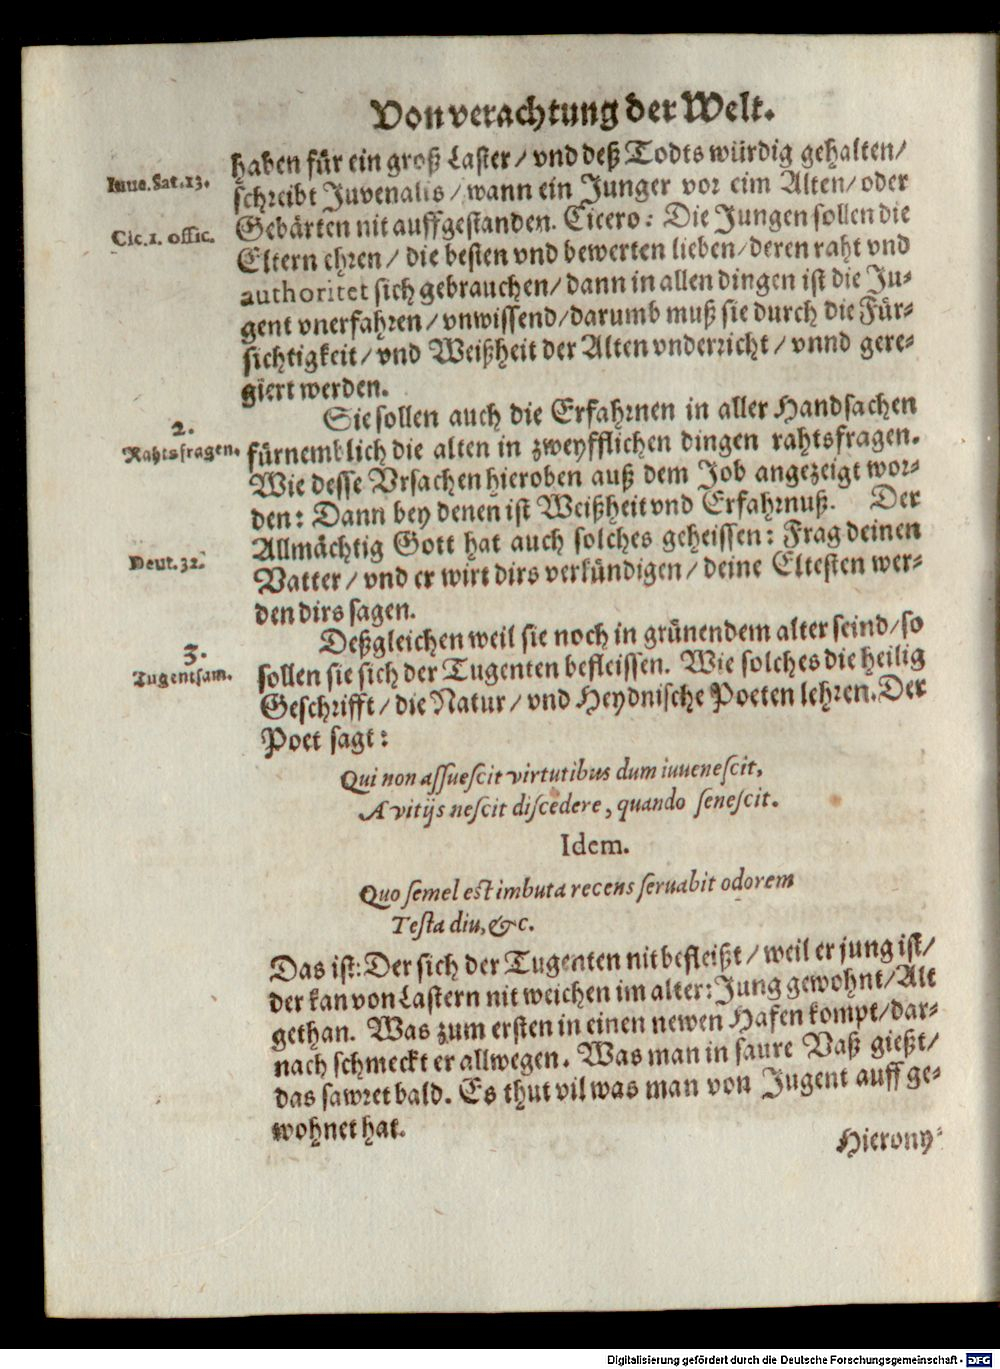 Von verachtung der Welt.
haben für ein groß Laster / vnd deß Todts würdig gehalten /
Iuue. Sat. 13.
schreibt Juvenalis / wann ein Junger vor eim Alten / oder
Gebärten nit auffgestanden. Cicero: Die Jungen sollen die
Cic. 1. offic.
Eltern ehren / die besten vnd bewerten lieben / deren raht vnd
authoritet sich gebrauchen / dann in allen dingen ist die Ju-
gent vnerfahren / vnwissend / darumb muß sie durch die Für-
sichtigkeit / vnd Weißheit der Alten vnderricht / vnnd gere-
giert werden.
Sie sollen auch die Erfahrnen in aller Handsachen
2.
Rahtsfragen.
fürnemblich die alten in zweyfflichen dingen rahtsfragen.
Wie desse Vrsachen hieroben auß dem Job angezeigt wor-
den: Dann bey denen ist Weißheit vnd Erfahrnuß. Der
Allmächtig Gott hat auch solches geheissen: Frag deinen
Deut. 32.
Vatter / vnd er wirt dirs verkündigen / deine Eltesten wer-
den dirs sagen.
Deßgleichen weil sie noch in grünendem alter seind / so
3.
Tugentsam.
sollen sie sich der Tugenten befleissen. Wie solches die heilig
Geschrifft / die Natur / vnd Heydnische Poeten lehren. Der
Poet sagt:
Qui non assuescit virtutibus dum iuuenescit,
A vitijs nescit discedere, quando senescit.
Idem.
Quo semel est imbuta recens seruabit odorem
Testa diu, &c.
Das ist: Der sich der Tugenten nit befleißt / weil er jung ist /
der kan von Lastern nit weichen im alter: Jung gewohnt / Alt
gethan. Was zum ersten in einen newen Hafen kompt / dar-
nach schmeckt er allwegen. Was man in saure Vaß gießt /
das sawret bald. Es thut vil was man von Jugent auff ge-
wohnet hat.
Hierony-
Digitalisierung gefördert durch die Deutsche Forschungsgemeinschaft - DFG